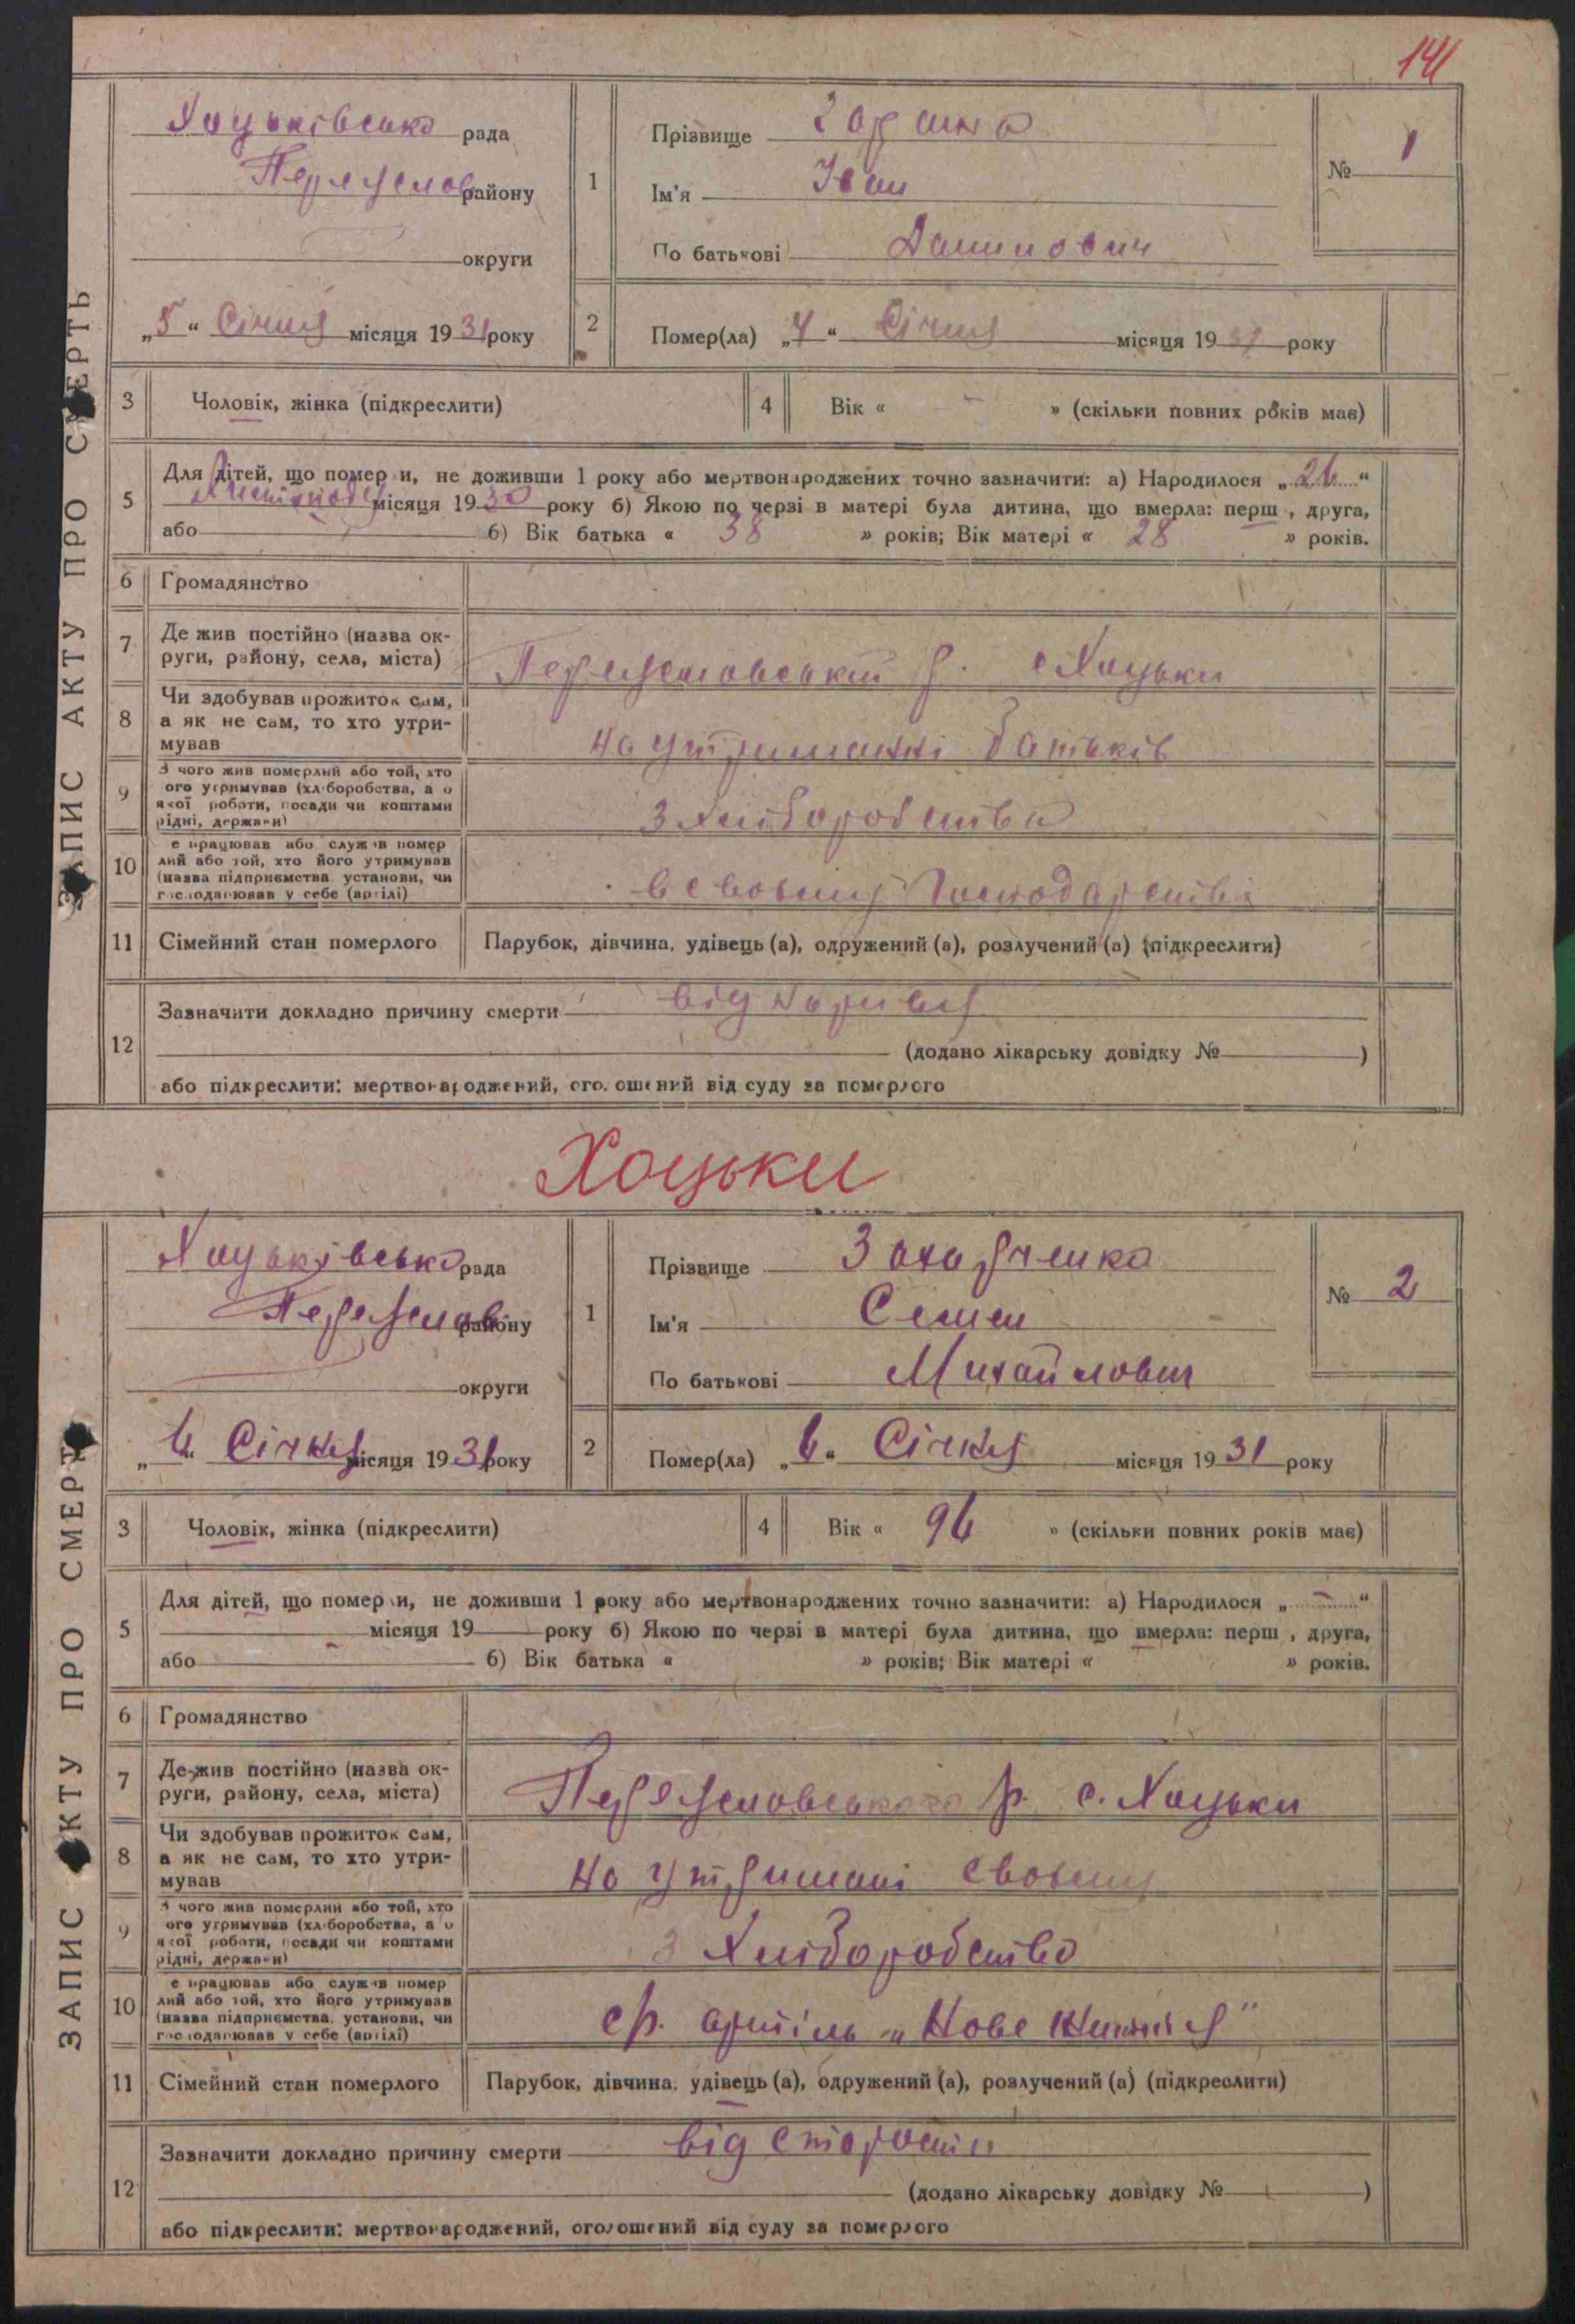 141
ЗАПИС АКТУ ПРО СМЕРТЬ
Хоцьківська рада
Переяслав району
округи
„5“ Січня місяця 1931 року
1
Прізвище
Ім'я Іван
По батькові Данилович
№ 1
2
Помер(ла) „4“ Січня місяця 1931 року
3 Чоловік, жінка (підкреслити)
4 Вік « - » (скільки повних років має)
5 Для дітей, що помер и, не доживши 1 року або мертвонароджених точно зазначити: а) Народилося „26“
Листопада місяця 1930 року б) Якою по черзі в матері була дитина, що вмерла: перш , друга,
або б) Вік батька « 38 » років; Вік матері « 28 » років.
6 Громадянство
7 Де жив постійно (назва ок-
руги, району, села, міста) Переяславський р. с Хоцьки
8 Чи здобував прожиток сам,
а як не сам, то хто утри-
мував на утриманні батьків
9 З чого жив померлий або той, хто
ого утримував (хл боробства, а о
якої роботи, посади чи коштами
рідні, держави) З хліборобства
10 е працював або служ в помер
лий або той, хто його утримував
(назва підприємства. установи, чи
господарював у себе (артілі) в своєму господарстві
11 Сімейний стан померлого Парубок, дівчина, удівець (а), одружений (а), розлучений (а) (підкреслити)
12 Зазначити докладно причину смерти від
(додано лікарську довідку № )
або підкреслити: мертвонароджений, оголошений від суду за померлого
Хоцьки
ЗАПИС АКТУ ПРО СМЕРТЬ
Хоцьківсько рада
Переяслав району
округи
„6“ Січня місяця 1931 року
1
Прізвище Захарченко
Ім'я Семен
По батькові Михайлович
№ 2
2
Помер(ла) „6“ Січня місяця 1931 року
3 Чоловік, жінка (підкреслити)
4 Вік « 96 » (скільки повних років має)
5 Для дітей, що помер и, не доживши 1 року або мертвонароджених точно зазначити: а) Народилося „ - “
місяця 19 року б) Якою по черзі в матері була дитина, що вмерла: перш , друга,
або б) Вік батька « » років; Вік матері « » років.
6 Громадянство
7 Де жив постійно (назва ок-
руги, району, села, міста) Переяславського р. с. Хоцьки
8 Чи здобував прожиток сам,
а як не сам, то хто утри-
мував на утримані своєму
9 З чого жив померлий або той, хто
ого утримував (хл боробства, а о
якої роботи, посади чи коштами
рідні, держави) З Хліборобство
10 е працював або служ в помер
лий або той, хто його утримував
(назва підприємства. установи, чи
господарював у себе (артілі) ср. артіль „Нове Життя“
11 Сімейний стан померлого Парубок, дівчина, удівець (а), одружений (а), розлучений (а) (підкреслити)
12 Зазначити докладно причину смерти від старости
(додано лікарську довідку № )
або підкреслити: мертвонароджений, оголошений від суду за померлого